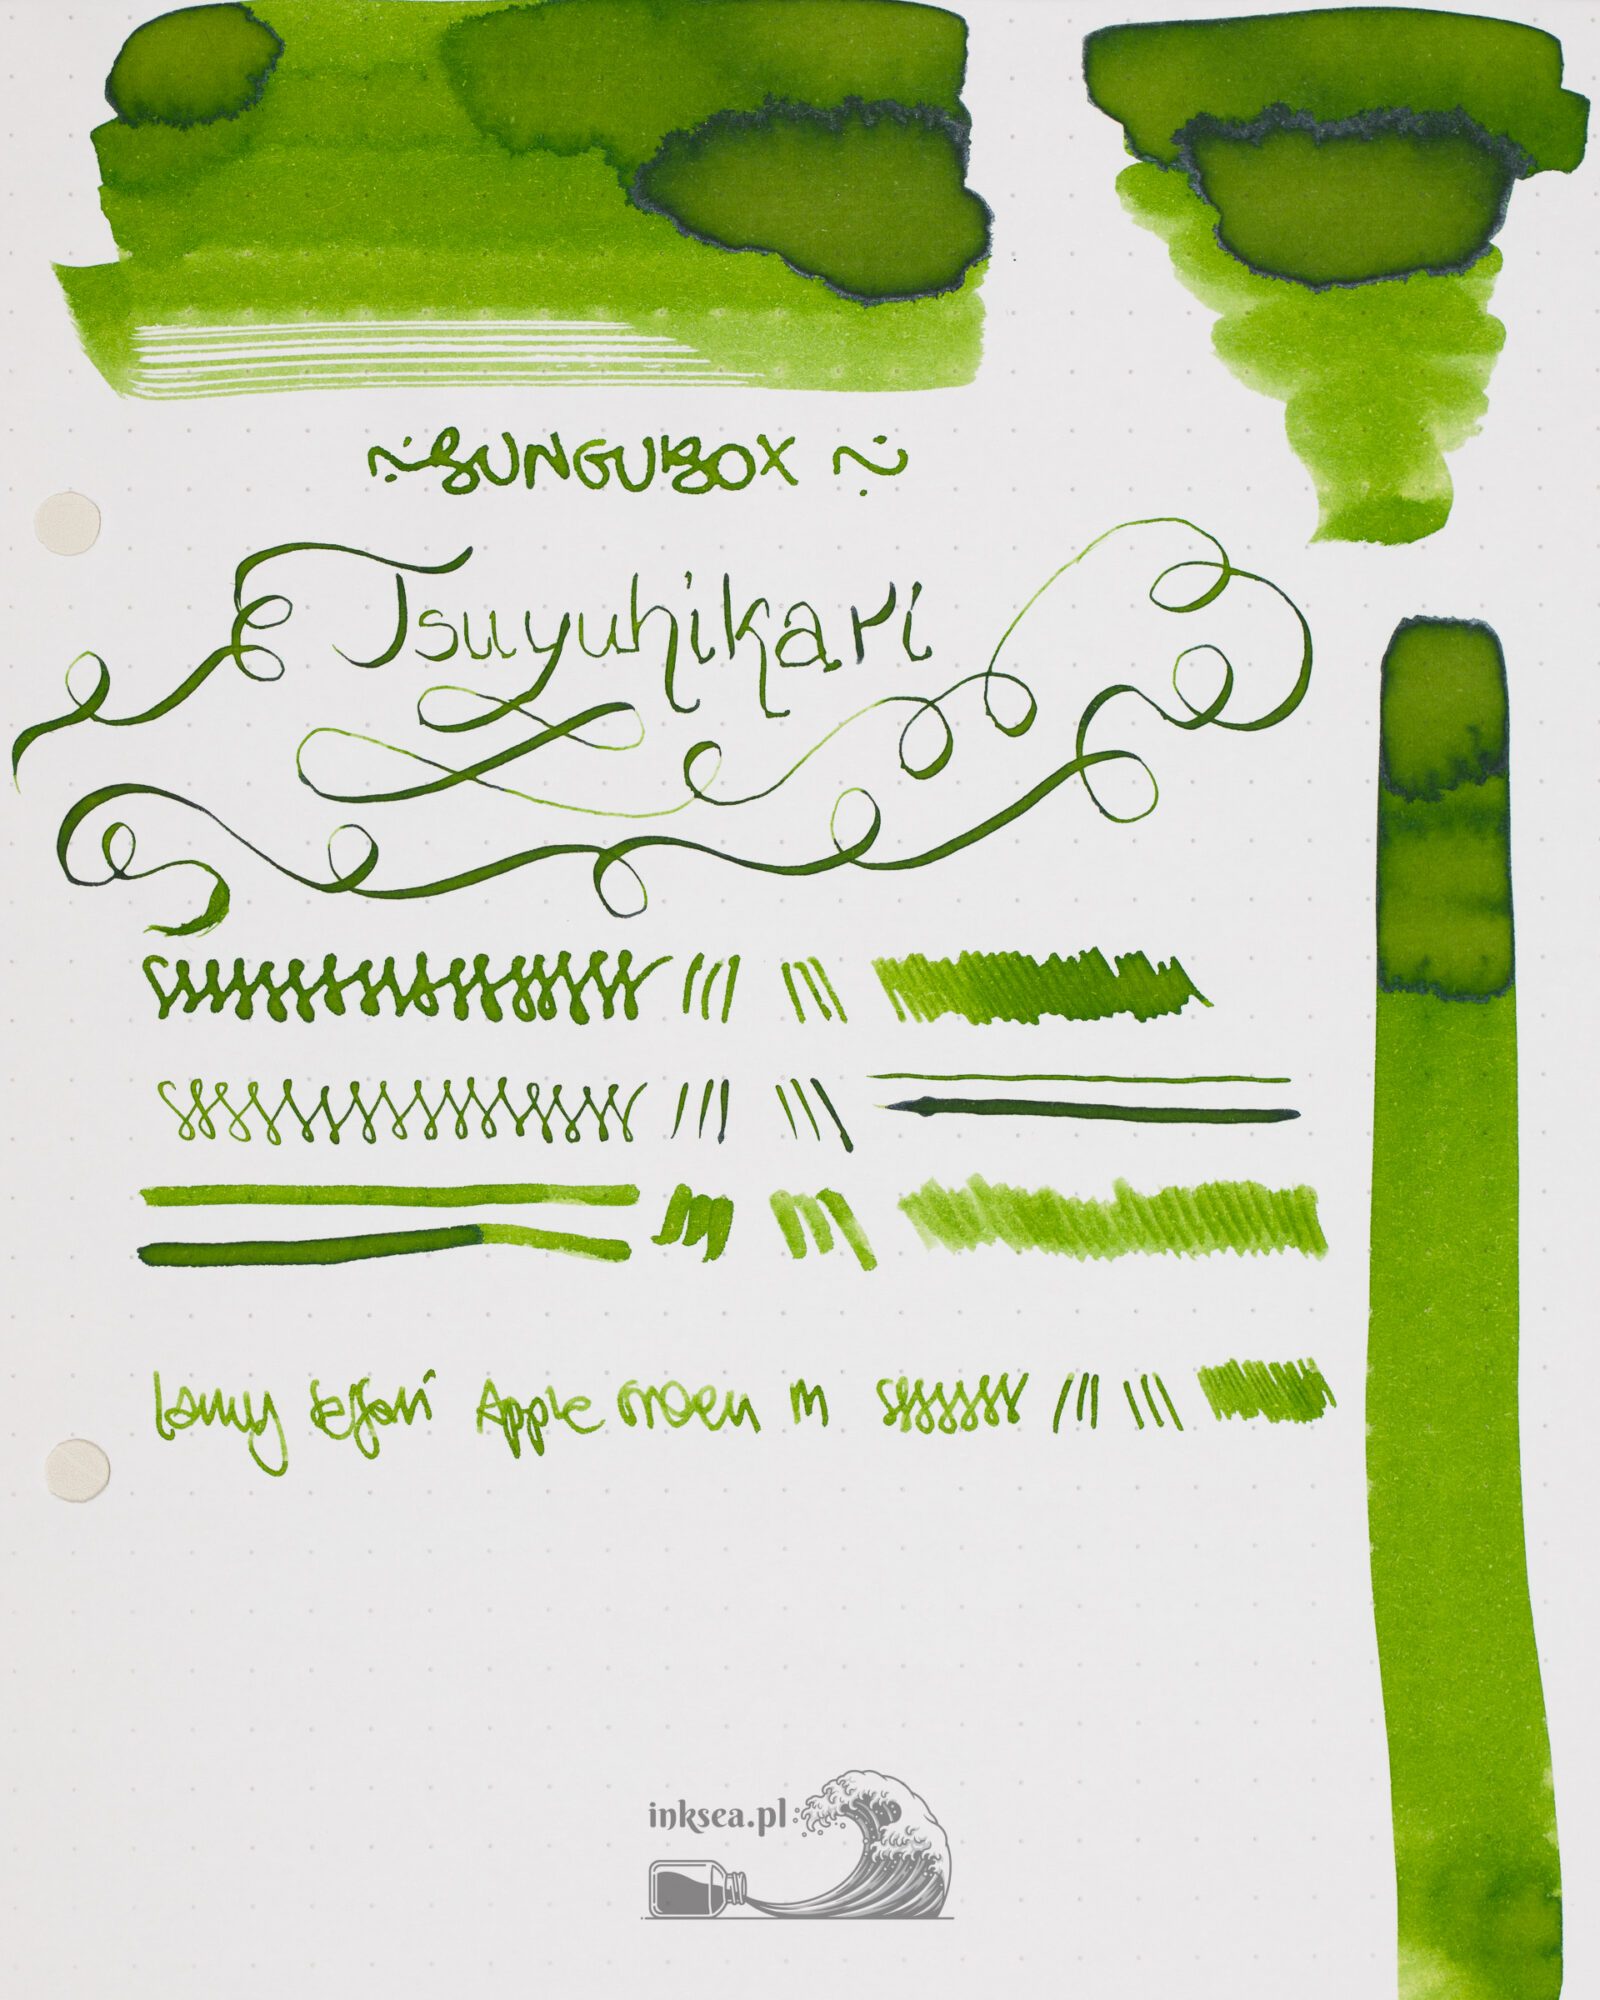 ~ BUNGUBOX ~
Tsuyuhikari
Lamy Safari Apple Green M
inksea.pl